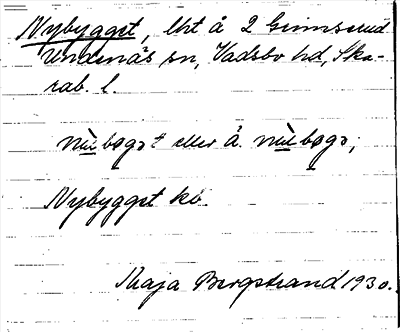 Nybygget, lht å 2 Grimserud
Undenäs sn, Vadsbo hd, Ska-
rab. l.
eller å
Nybygget kb.
Maja Bergstrand 1930.